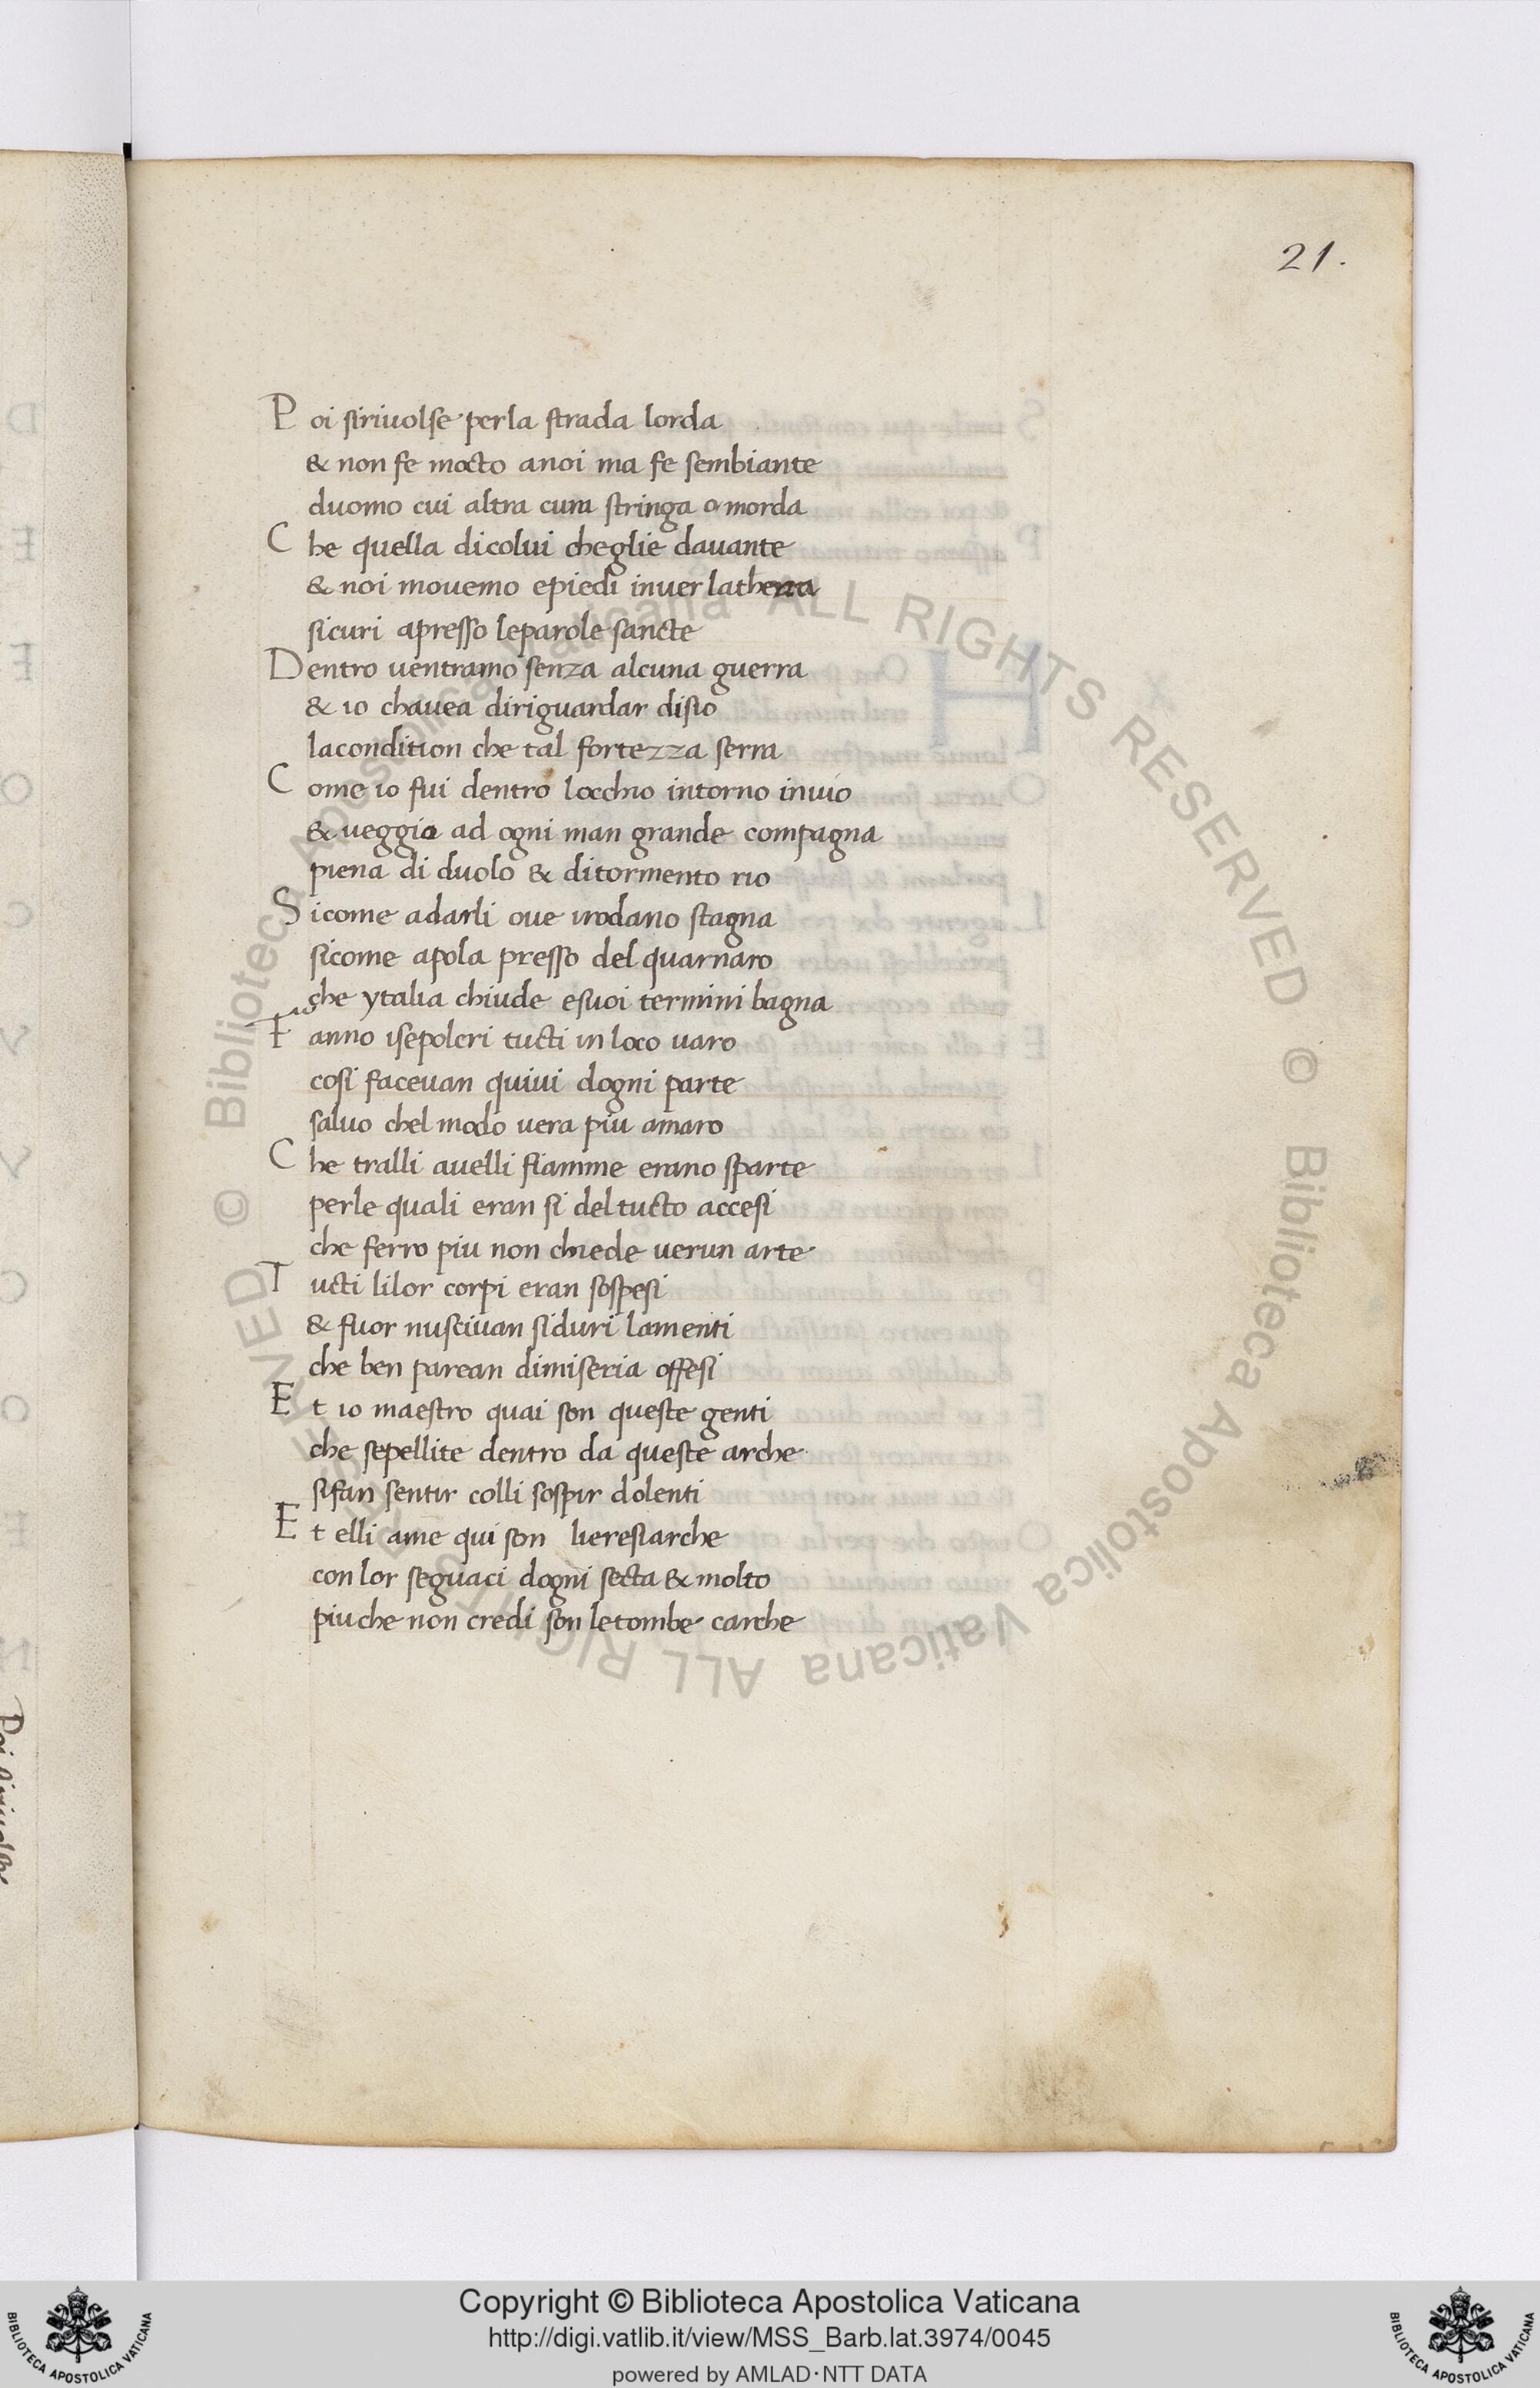 21.
Poi siriuolse perla strada lorda
& non fe mocto anoi ma fe sembiante
duomo cui altra cura stringa o morda
Che quella dicolui cheglie dauante
& noi mouemo epiedi inuer latherra
sicuri apresso leparole sancte
Dentro uentramo senza alcuna guerra
& io chauea diriguardar disio
lacondition che tal fortezza serra
Come io fui dentro locchio intorno inuio
& ueggio ad ogni man grande compagna
piena di duolo & ditormento rio
Sicome adarli oue irodano stagna
sicome apola presso del quarnaro
che ytalia chiude esuoi termini bagna
Fanno isepolcri tucti in loco uaro
cosi faceuan quiui dogni parte
saluo chel modo uera piu amaro
Che tralli auelli fiamme erano sparte
perle quali eran si del tucto accesi
che ferro piu non chiede uerun arte
Tucti lilor corpi eran sospesi
& fuor nusciuan siduri lamenti
che ben parean dimiseria offesi
Et io maestro quai son queste genti
che sepellite dentro da queste arche
sifan sentir colli sospir dolenti
Et elli ame qui son lieresiarche
con lor seguaci dogni secta & molto
piuche non credi son letombe carche
Poi siriuolse
© Biblioteca Apostolica Vaticana ALL RIGHTS RESERVED © Biblioteca Apostolica Vaticana ALL RIGHTS RESERVED
Copyright © Biblioteca Apostolica Vaticana
http://digi.vatlib.it/view/MSS_Barb.lat.3974/0045
powered by AMLAD·NTT DATA
BIBLIOTECA APOSTOLICA VATICANA
BIBLIOTECA APOSTOLICA VATICANA